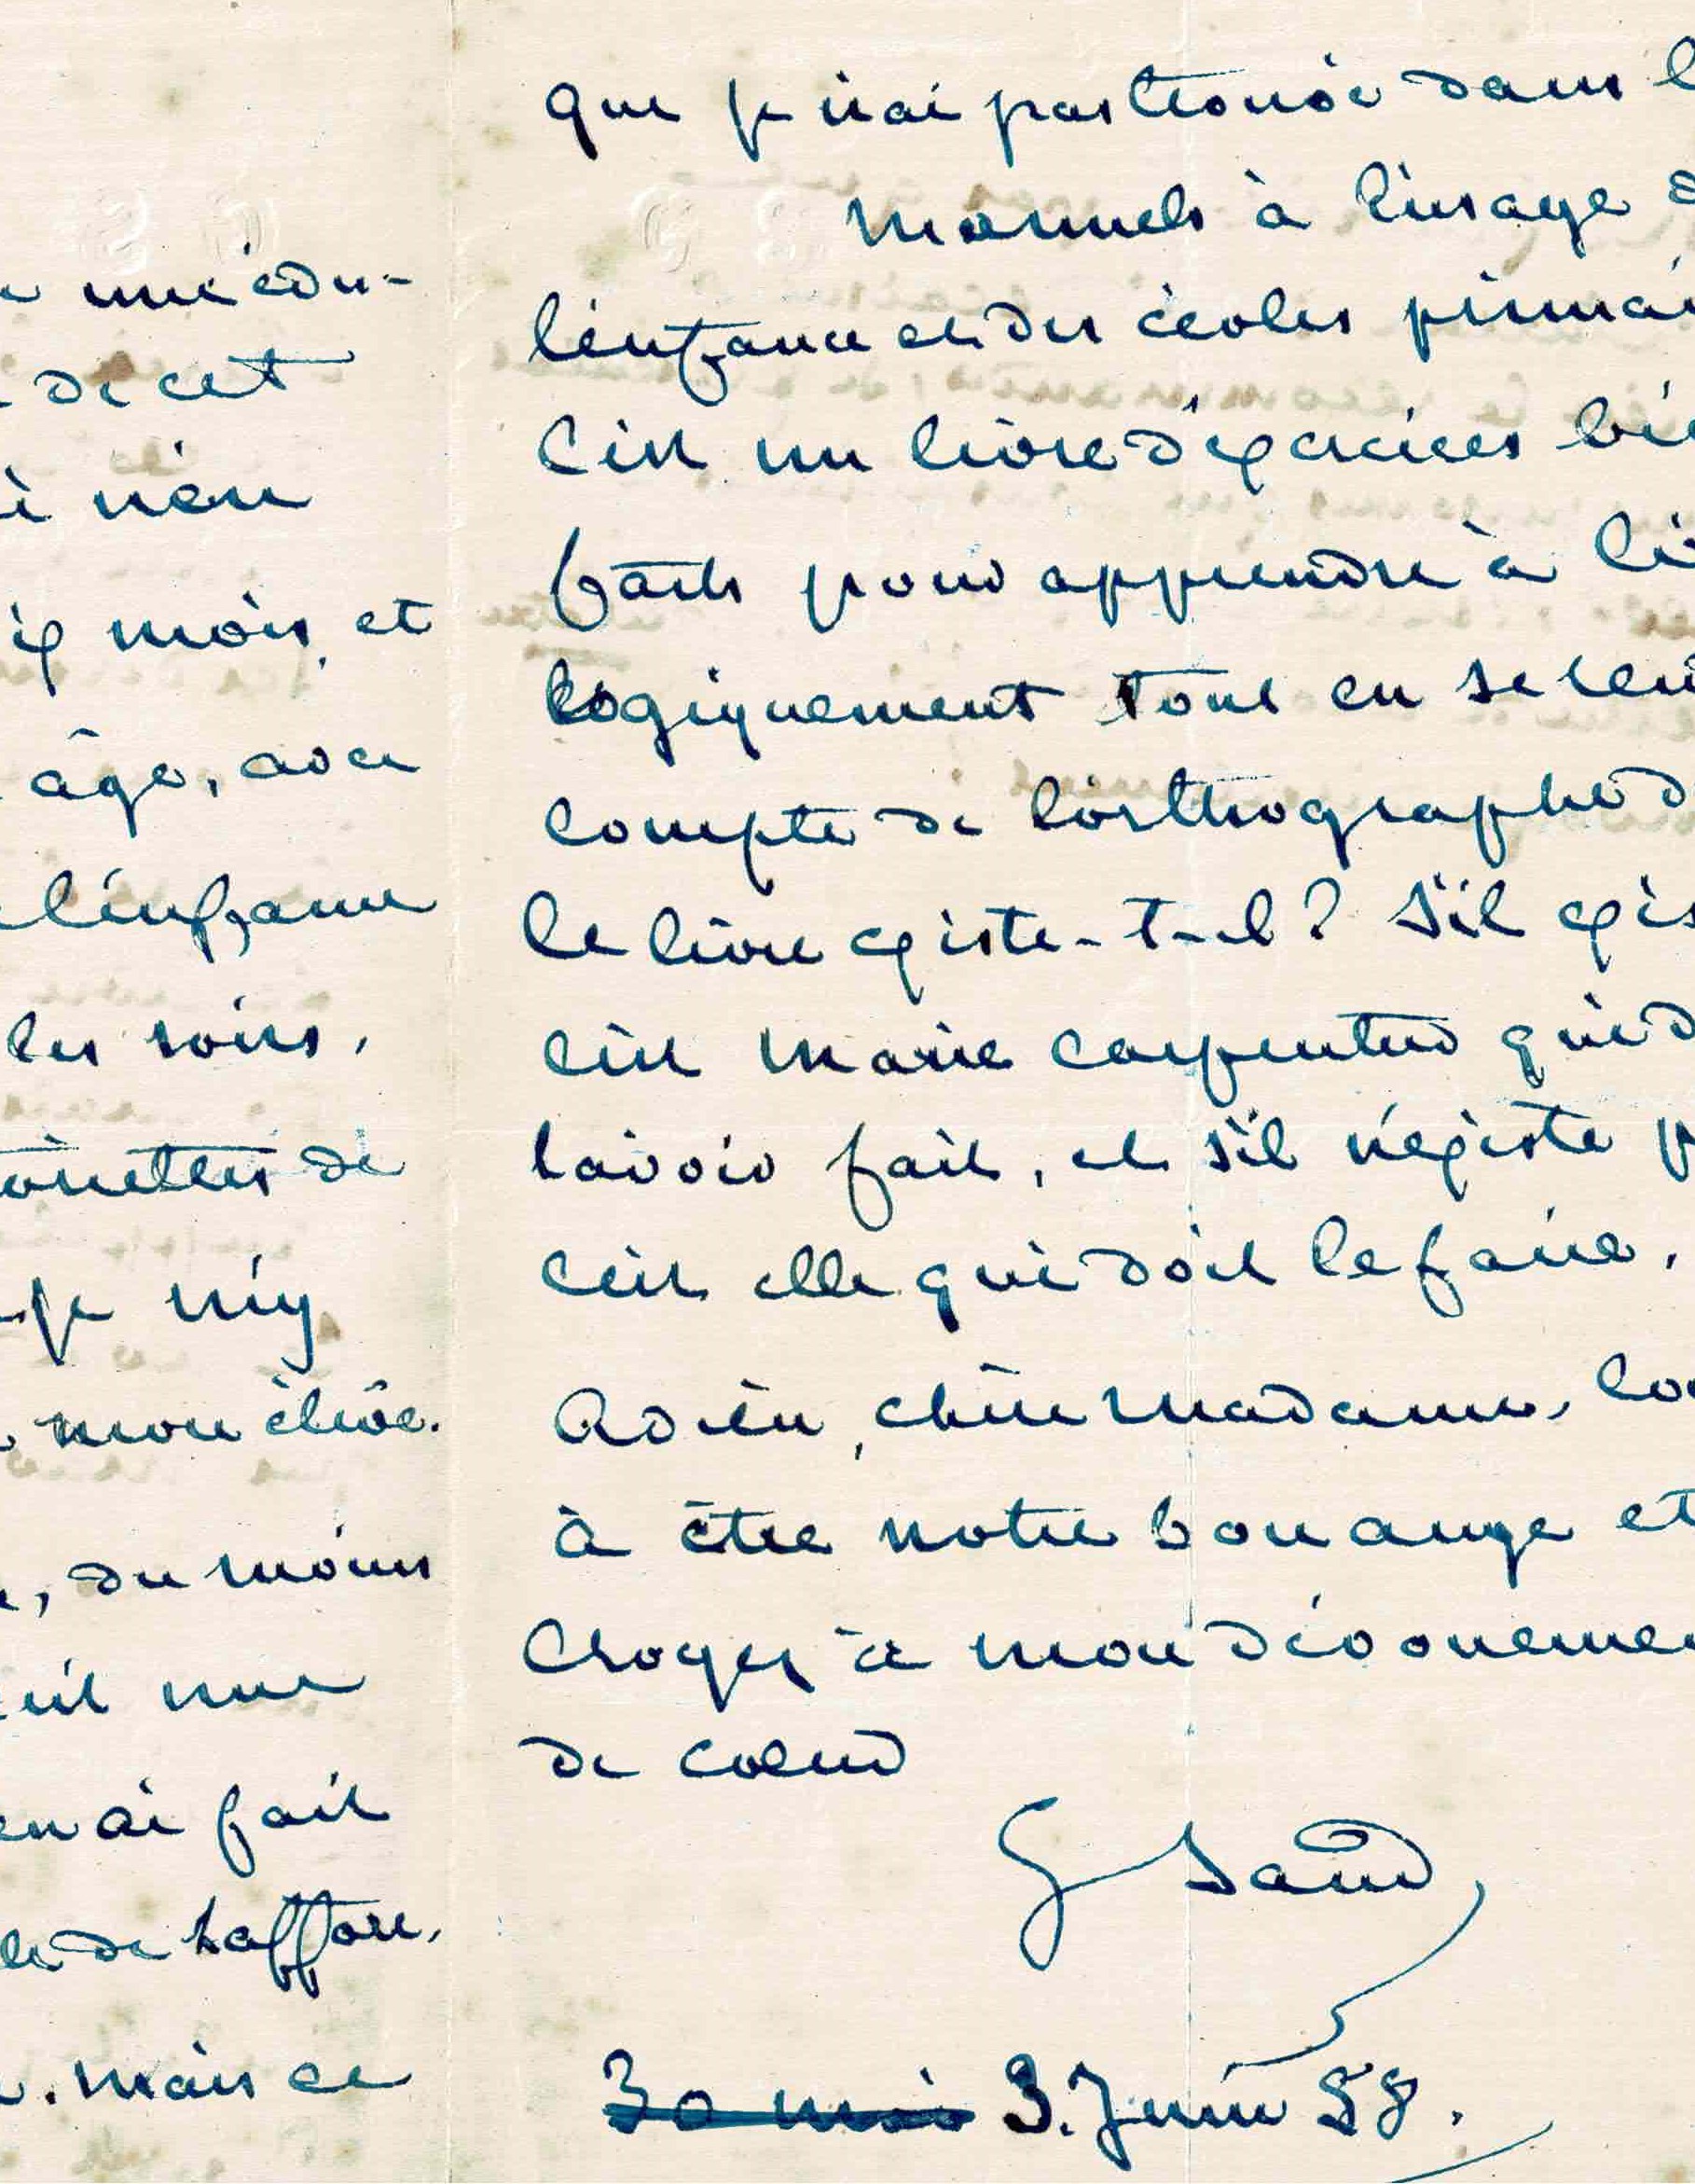 une édu-
de cet
rien
mois, et
âge, avec
l'enfance
les soins,
de
je m'y
mon élève.
, du moins
une
en ai fait
de Laffore,
. mais ce
que je n'ai pas trouvé dans l
manuels à l'usage d
l'enfance et des écoles primai
C'est un livre d'exercices bie
faits pour apprendre à li
logiquement tout en se ren
compte de l'orthographe d
le livre existe-t-il? S'il exis
c'est Marie Carpentier qui d
l'avoir fait, et s'il n'existe p
c'est elle qui doit le faire.
Adieu, chère Madame, co
à être notre bon ange et
Croyez à mon dévouemen
de coeur
G Sand
30 mai 3. Juin 58.